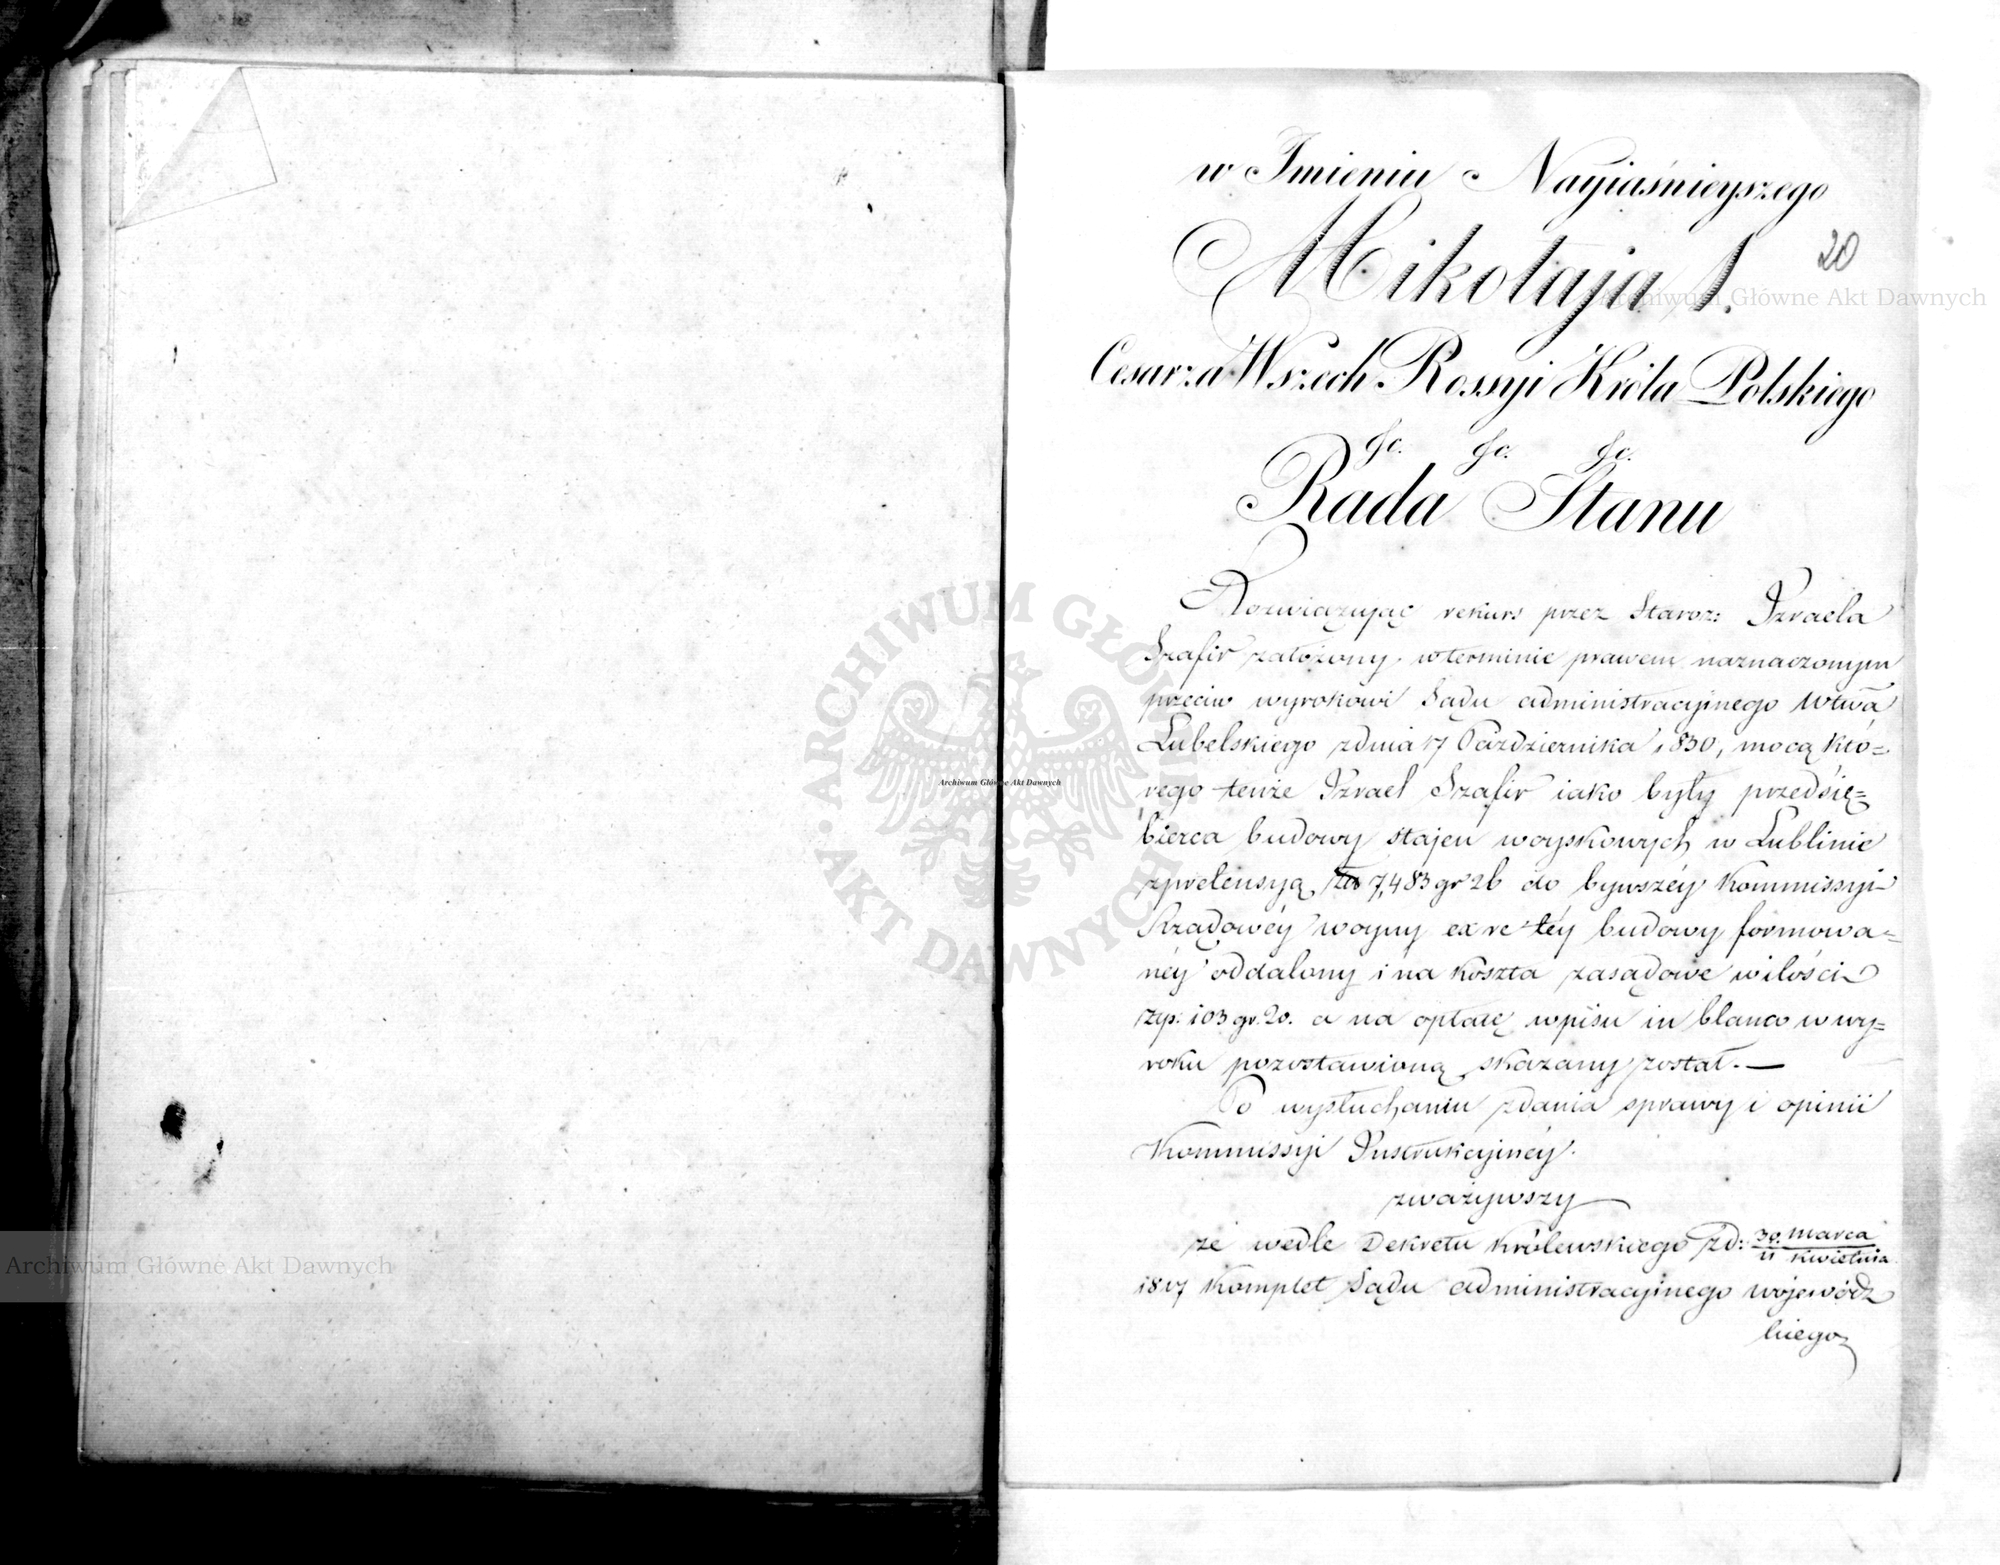 w Imieniu Nayiaśnieyszego
Mikołaja I.
20
Cesarza Wszech Rossyi Króla Polskiego
&c. &c. &c.
Rada Stanu
Rozwiązując rekurs przez Staroz: Izraela
Szafir założony w terminie prawem naznaczonym
przeciw wyrokowi Sądu administracyinego Wtwa
Lubelskiego z dnia 17 Października 1830, mocą któ=
rego tenże Izrael Szafir iako były przedsię=
bierca budowy stajen woyskowych w Lublinie
z pretensyą złp 7,483 gr 26 do bywszéy Kommissyi
Rządowéy woyny ex re téy budowy formowa=
néy oddalony i na koszta zasądowe w ilości
złp: 103 gr. 20. a na opłatę wpisu in blanco w wy=
roku pozostawioną skazany został. —
Po wysłuchaniu zdania sprawy i opinii
Kommissyi Instrukcyinéy.
zważywszy
że wedle Dekretu Królewskiego z d: 30 marca / 11 kwietnia
1817 Komplet Sądu administracyinego wójewódz
kiego
Archiwum Główne Akt Dawnych
ARCHIWUM GŁÓWNE AKT DAWNYCH
Archiwum Główne Akt Dawnych
Archiwum Główne Akt Dawnych